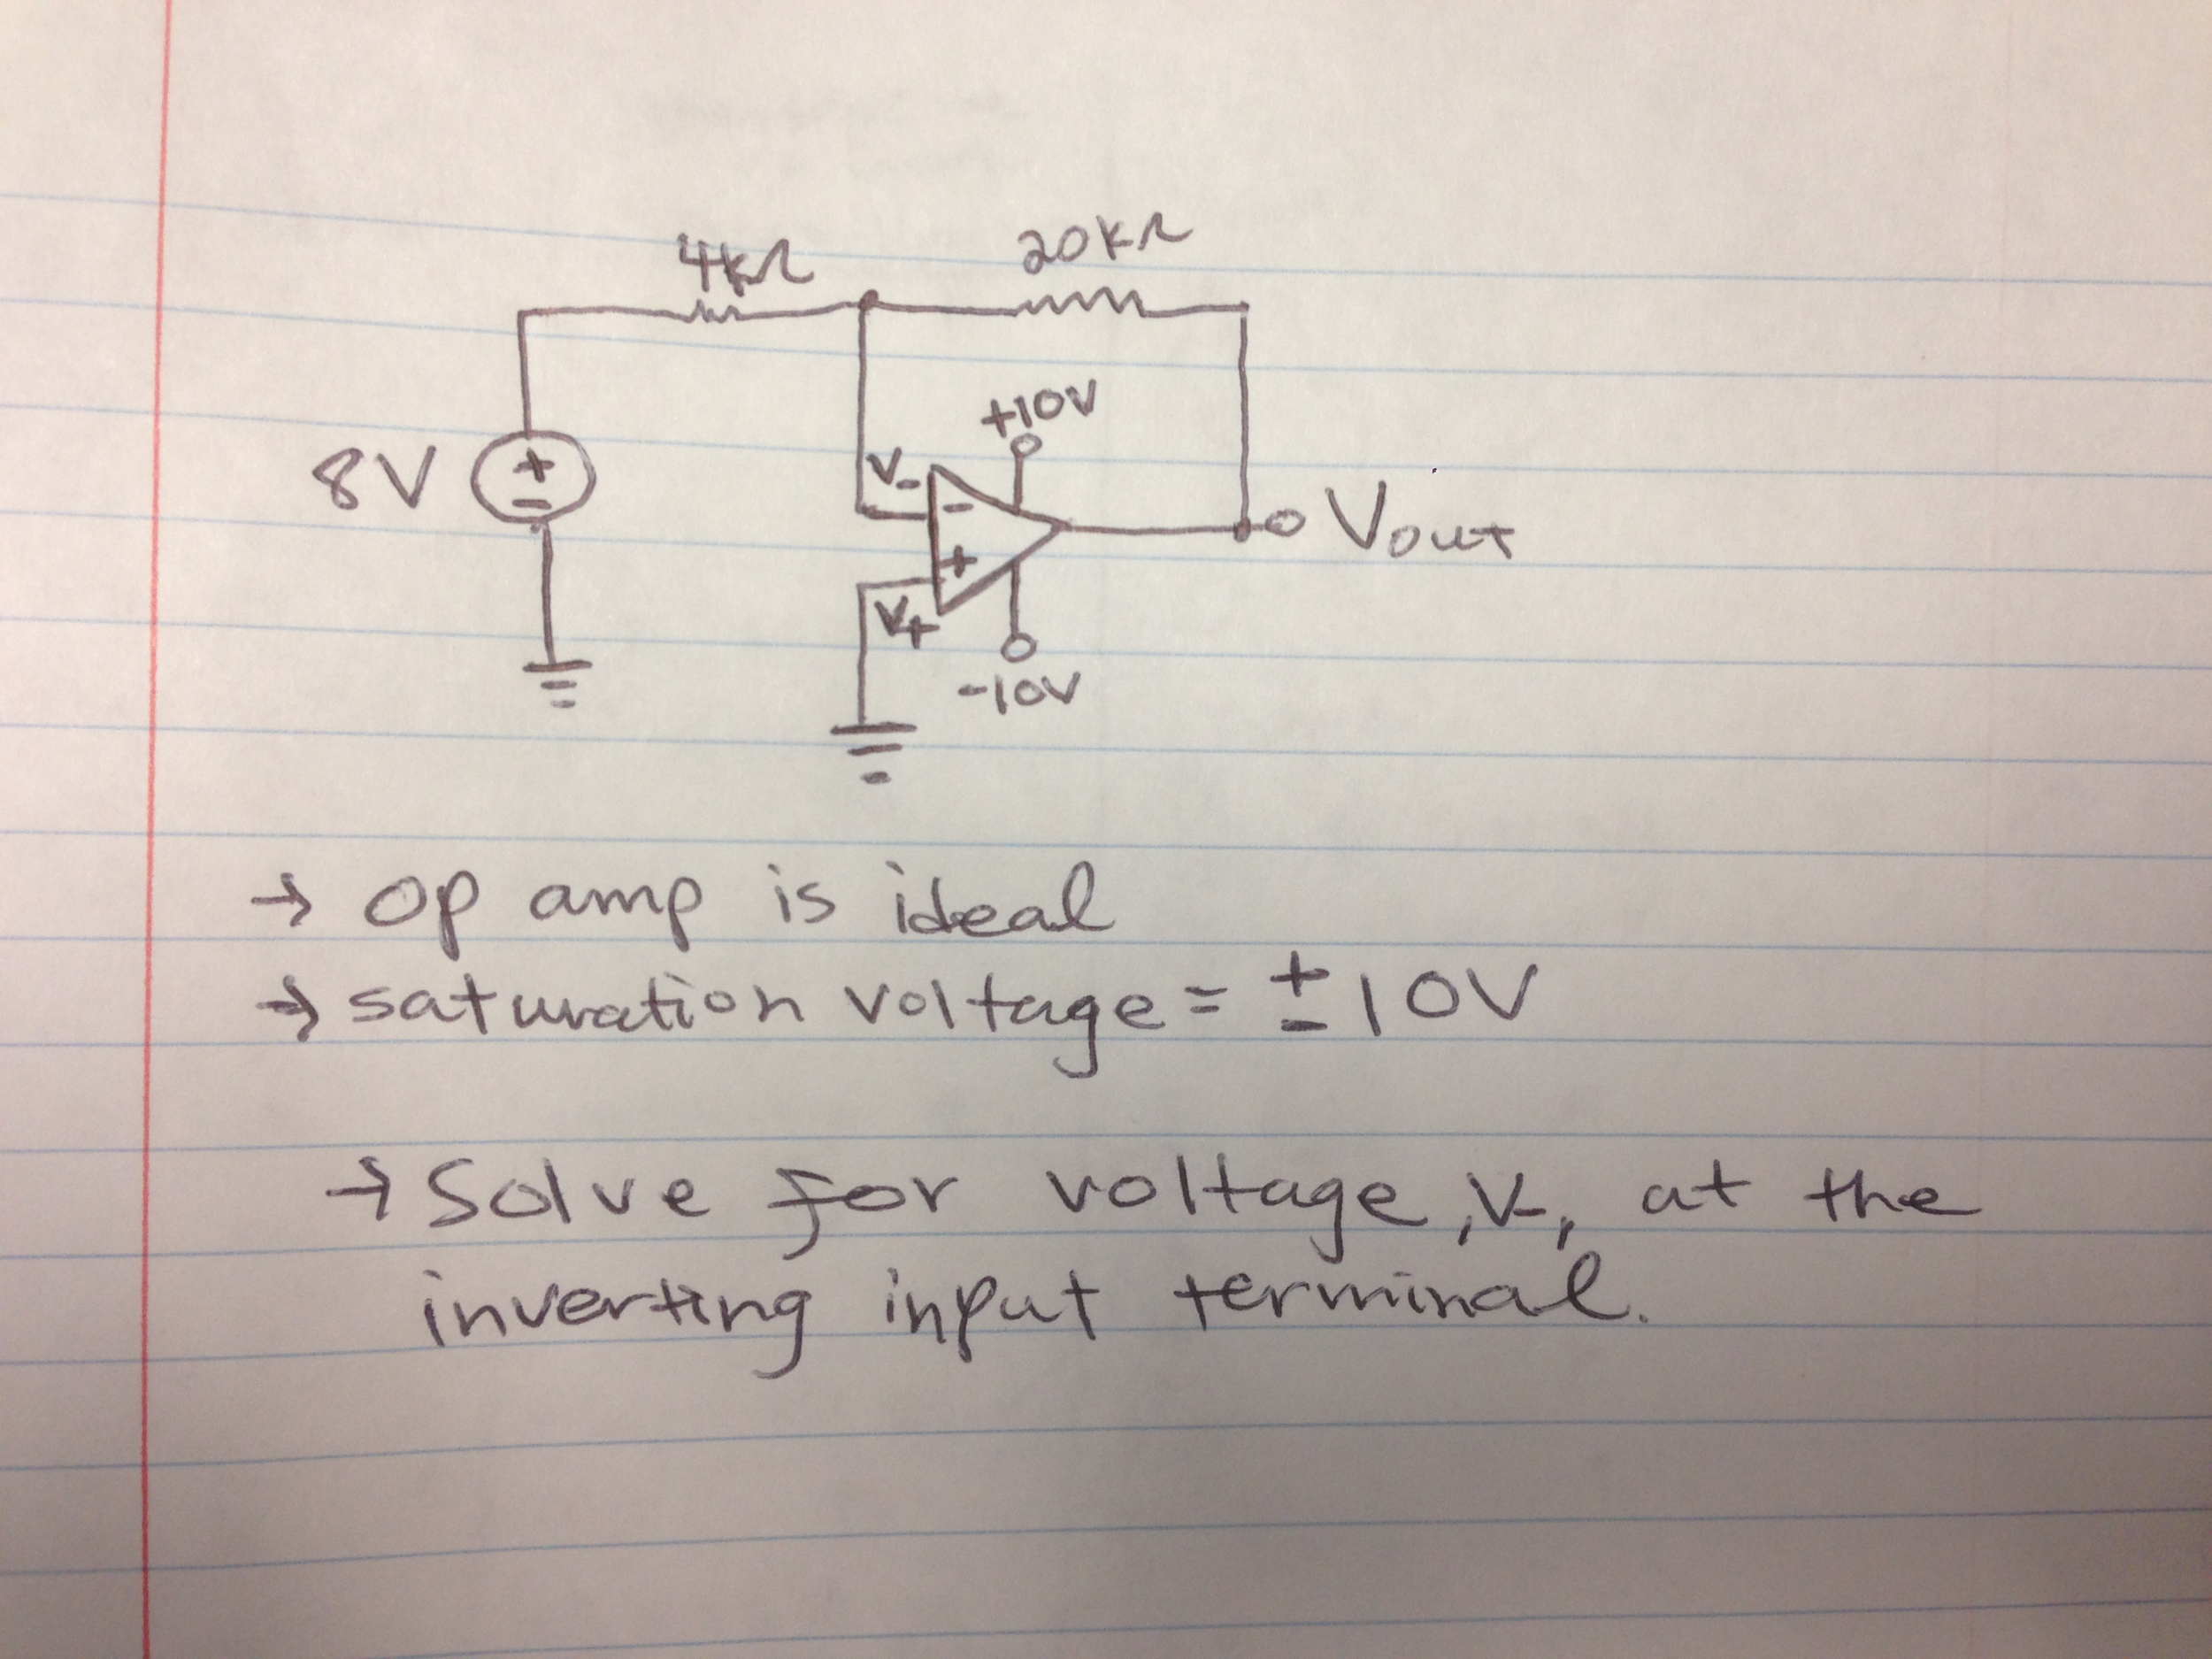 4kΩ 20kΩ
+10V
8V + - V- - Vout
+
V+
-10V
→ op amp is ideal
→ saturation voltage = ±10V
→ Solve for voltage, V-, at the
inverting input terminal.